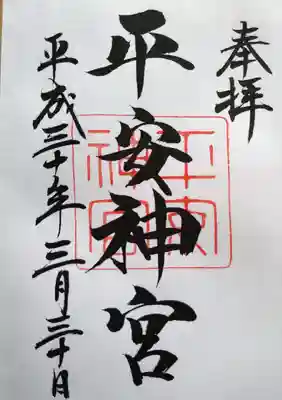 奉拝
平安神宮
平安神宮
平成三十年三月三十日